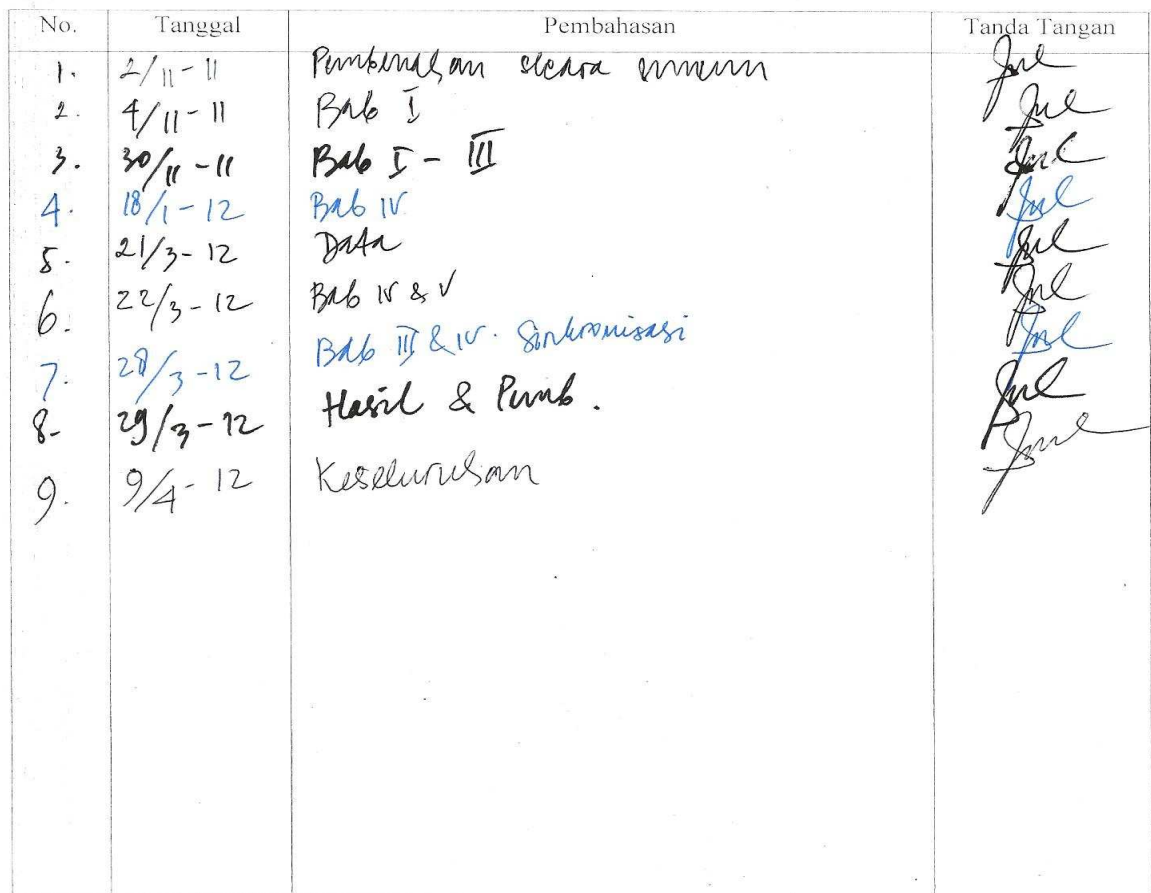 No. Tanggal Pembahasan Tanda Tangan
1. 2/11-11 Pembenahan secara umum
2. 4/11-11 Bab I
3. 30/11-11 Bab I - III
4. 18/1-12 Bab IV
5. 21/3-12 Data
6. 22/3-12 Bab IV & V
7. 28/3-12 Bab III & IV. Sinkronisasi
8- 29/3-12 Hasil & Pemb.
9. 9/4-12 Keseluruhan